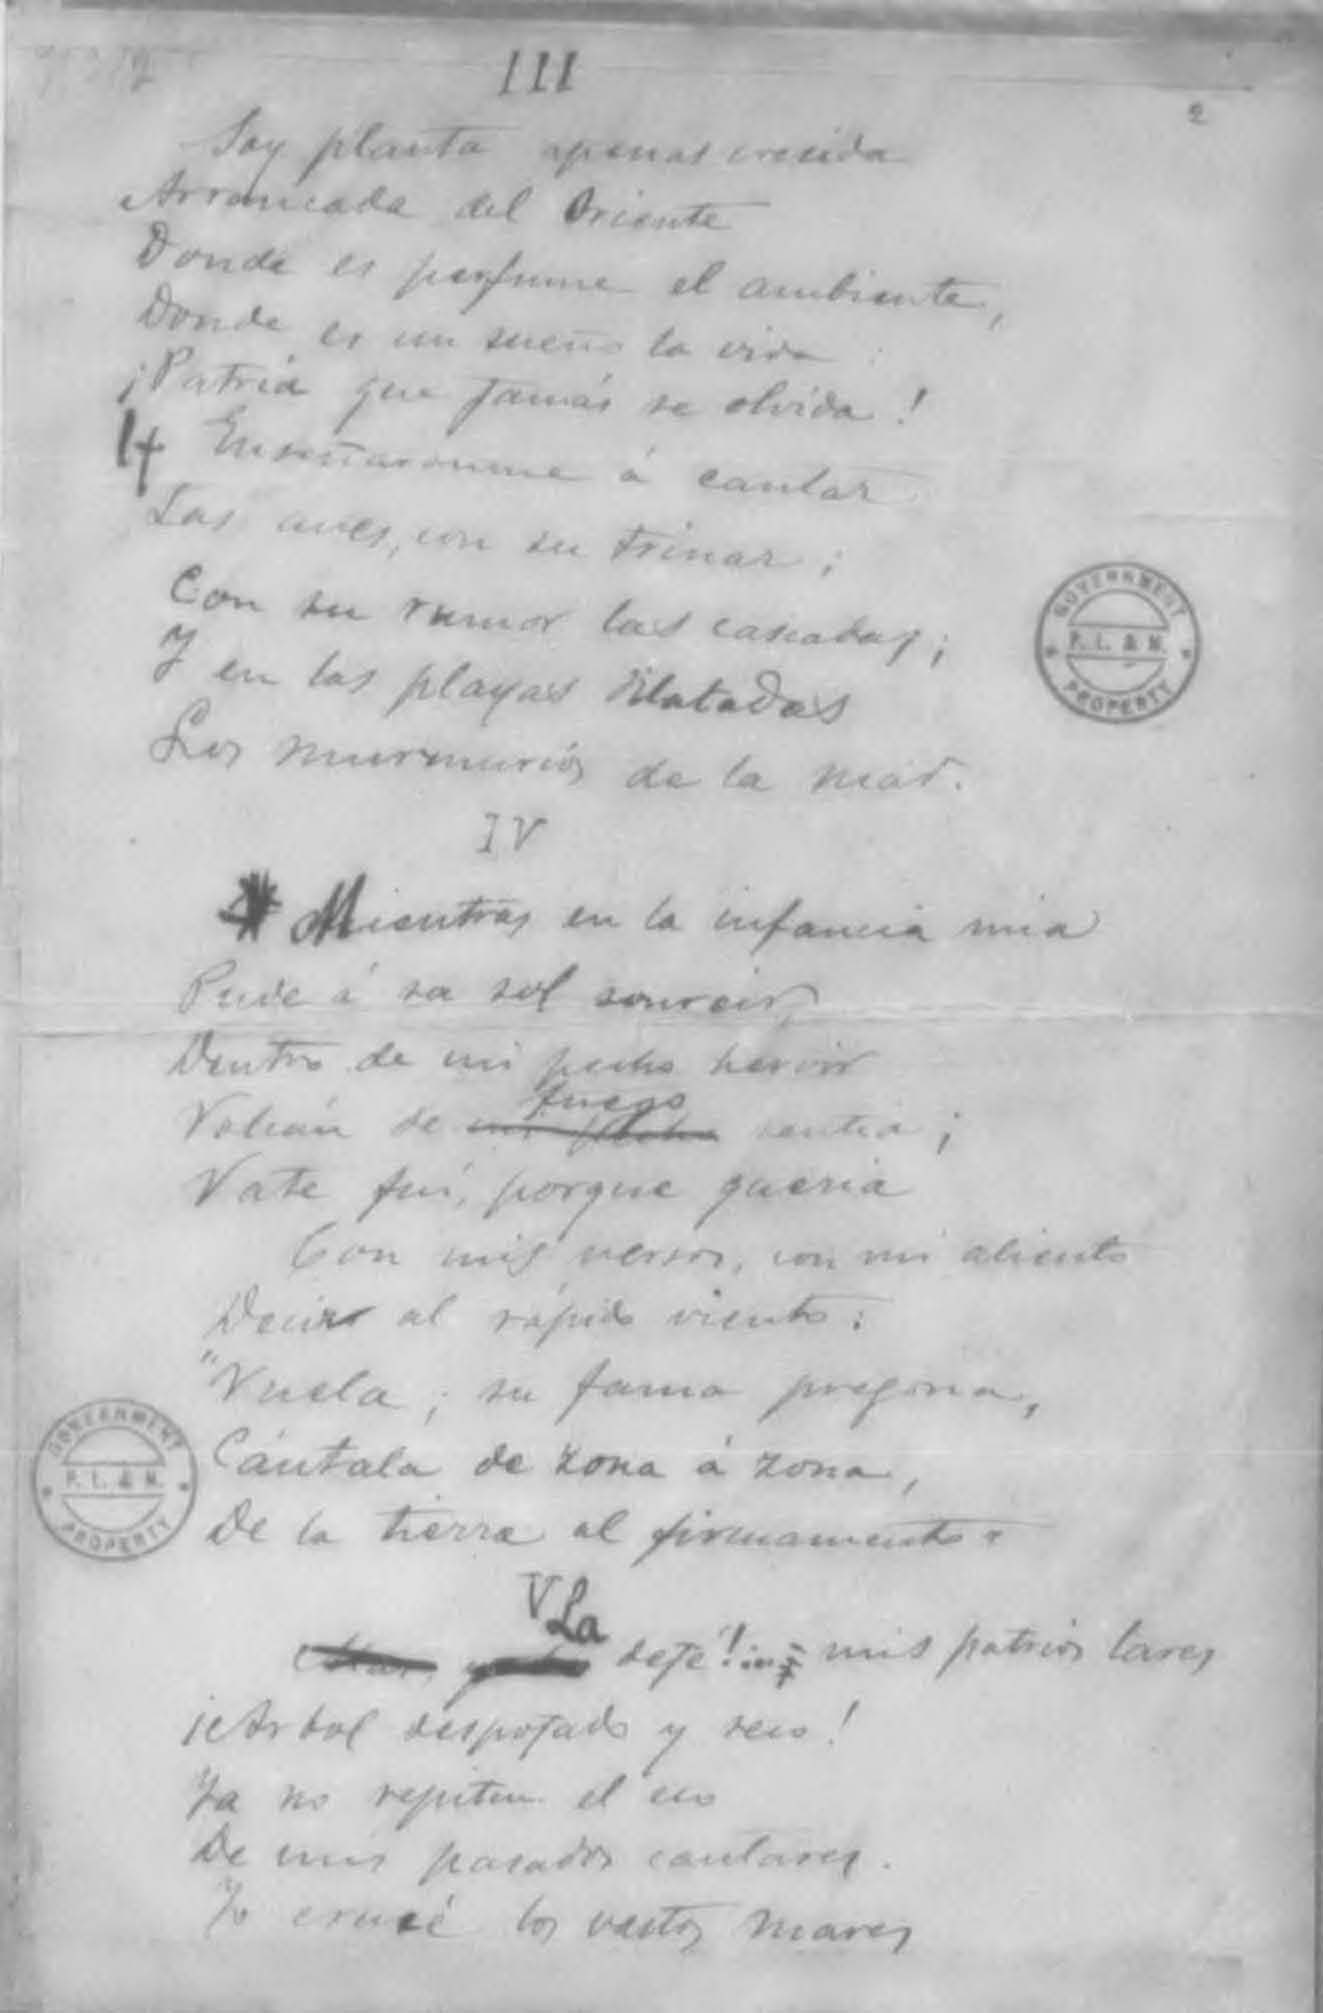 III
2
Soy planta apenas crecida
Arrancada del Oriente
Donde es perfume el ambiente,
Donde es un sueño la vida:
¡Patria que jamás se olvida!
Enseñaronme á cantar
Las aves, con su trinar;
Con su rumor las cascadas;
Y en las playas dilatadas
Los murmurios de la mar.
GOVERNMENT
P. L. & M.
PROPERTY
IV
Mientras en la infancia mia
Pude á su sol sonreir
Dentro de mi pecho hervir
fuego
Volcán de mi pecho sentia;
Vate fuí, porque queria
Con mis versos, con mi aliento
Decir al rápido viento:
"Vuela; su fama pregona,
Cántala de zona á zona,
De la tierra al firmamento"
GOVERNMENT
P. L. & M.
PROPERTY
V
La dejé!... mis patrios lares
¡Arbol despojado y seco!
Ya no repiten el eco
De mis pasados cantares.
Yo crucé los vastos mares